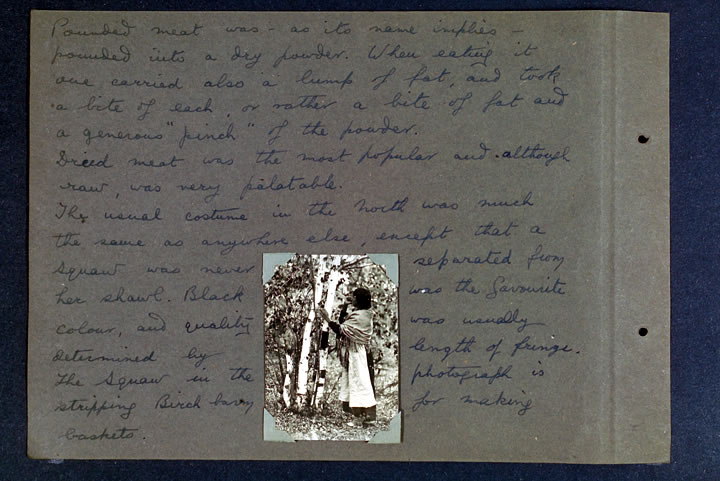 Pounded meat was - as its name implies -
pounded into a dry powder. When eating it
one carried also a lump of fat, and took
a bite of each, or rather a bite of fat and
a generous "pinch" of the powder.
Dried meat was the most popular and although
raw, was very palatable.
The usual costume in the North was much
the same as anywhere else, except that a
Squaw was never separated from
her shawl. Black was the favourite
colour, and quality was usually
determined by length of fringe.
The Squaw in the photograph is
stripping Birch bark for making
baskets.